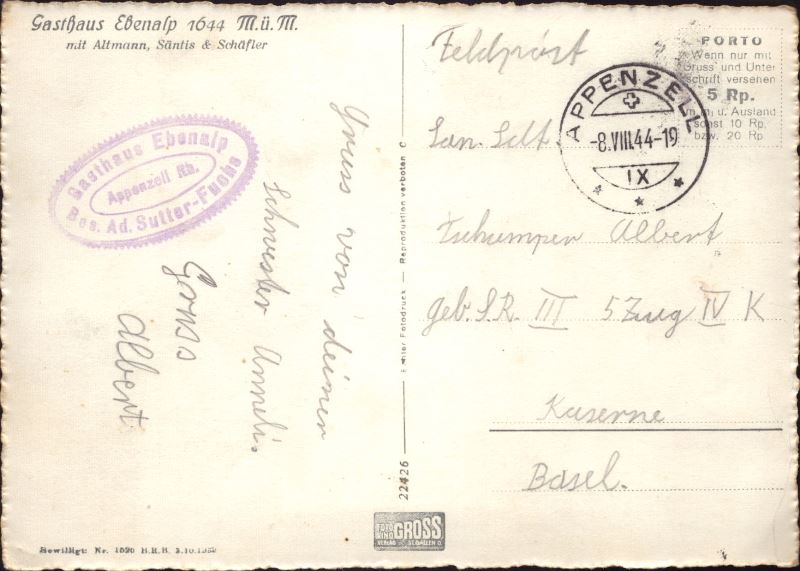 Gasthaus Ebenalp 1644 M.ü.M.
mit Altmann, Säntis & Schäfler
Gasthaus Ebenalp
Appenzell Rh.
Bes. Ad. Sutter-Fuchs
Gruss von deiner
Schwester Anneli.
Gruss
Albert
Bewilligt: Nr. 1620 B.R.B. 3.10.1939
Reproduktion verboten C
Fotodruck
22426
FOTO
GROSS
VERLAG ST.GALLEN
Feldpost
PORTO
Wenn nur mit
Gruss und Unter
schrift versehen
5 Rp.
u. Ausland
sonst 10 Rp.
bzw. 20 Rp.
APPENZELL
-8.VIII.44-19
IX
San. Sdt.
Tschumper Albert
geb. S.R. III 5 Zug IV K
Kaserne
Basel.